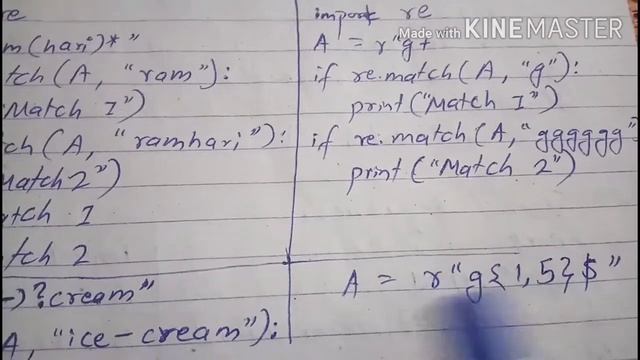 re
m(hari)*"
tch(A, "ram"):
Match I")
ch(A, "ramhari"):
Match 2")
tch I
tch 2
-)?cream"
A, "ice-cream"):
import re
A = r"g+
if re.match(A, "g"):
print("Match I")
if re.match(A, "gggggg"
print("Match 2")
A = r"g{1,5}$"
Made with KINEMASTER